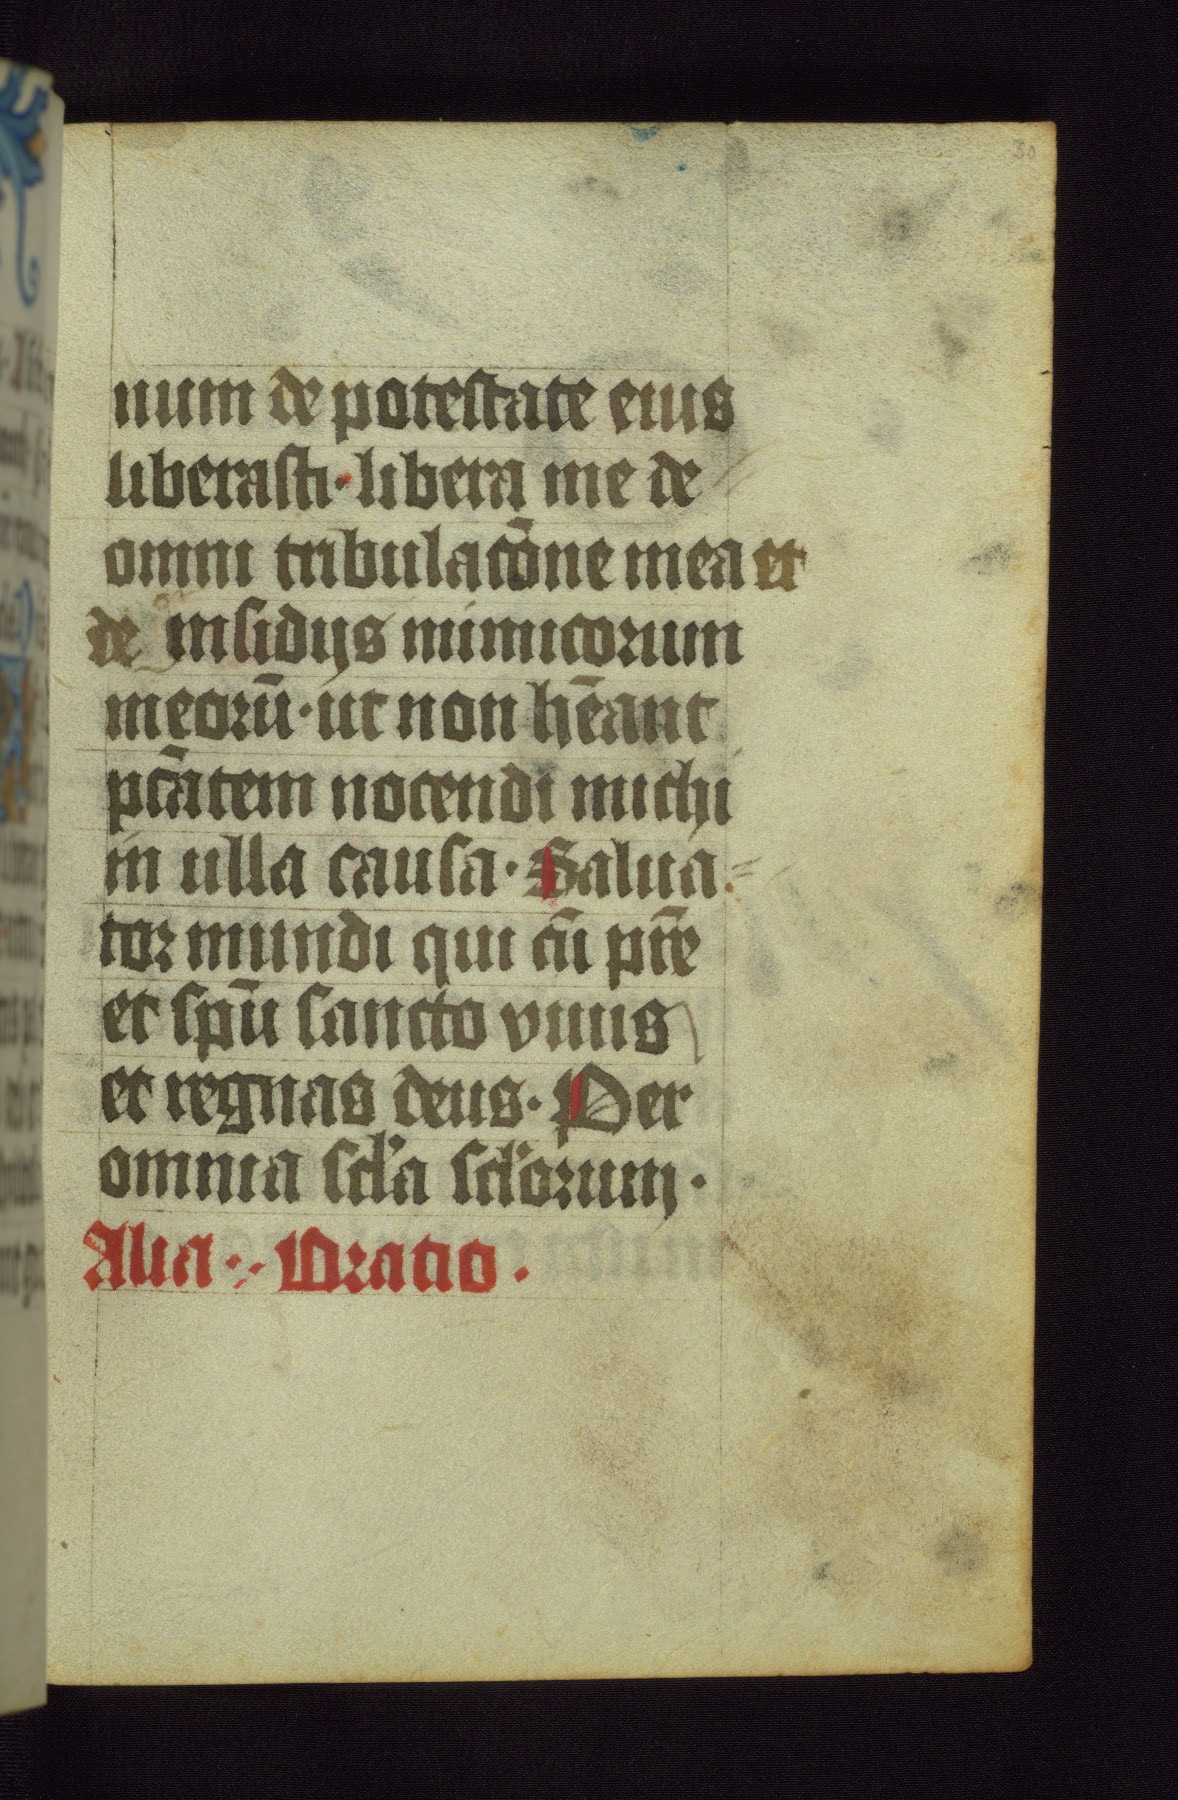 30
num de potestate eius
liberasti · libera me de
omni tribulacōne mea et
de insidijs inimicorum
meorū · ut non hēant
ptātem nocendi michi
in ulla causa · Salua=
tor mundi qui cū pr̄e
et spū sancto viuis
et regnas deus · Per
omnia scl'a scl'orum ·
Alia · Oratio ·